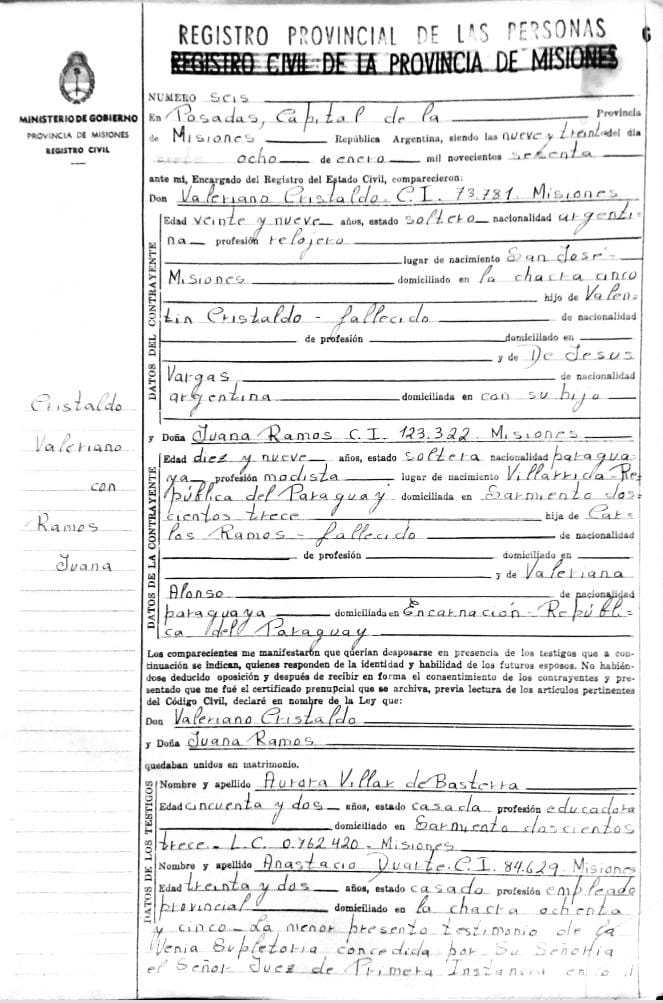 REGISTRO PROVINCIAL DE LAS PERSONAS
REGISTRO CIVIL DE LA PROVINCIA DE MISIONES
6
MINISTERIO DE GOBIERNO
PROVINCIA DE MISIONES
REGISTRO CIVIL
NUMERO seis
En Posadas, Capital de la Provincia
de Misiones República Argentina, siendo las nueve y treinta del día
ocho de enero mil novecientos sesenta
ante mi, Encargado del Registro del Estado Civil, comparecieron:
Don Valeriano Cristaldo. C.I. 73.781. Misiones
DATOS DEL CONTRAYENTE
Edad veinte y nueve años, estado soltero nacionalidad argenti-
na profesión relojero
lugar de nacimiento San José-
Misiones domiciliado en la chacra cinco
hijo de Valen-
tin Cristaldo - fallecido de nacionalidad
de profesión domiciliado en
y de De Jesus
Vargas de nacionalidad
argentina domiciliada en con su hijo
Cristaldo
Valeriano
con
Ramos
Juana
y Doña Juana Ramos C.I. 123.322. Misiones
DATOS DE LA CONTRAYENTE
Edad diez y nueve años, estado soltera nacionalidad paragua-
ya profesión modista lugar de nacimiento Villarrica-Re-
pública del Paraguay domiciliada en Sarmiento dos-
cientos trece hija de Car-
los Ramos - fallecido de nacionalidad
de profesión domiciliado en
y de Valeriana
Alonso de nacionalidad
paraguaya domiciliada en Encarnación - Repúbli-
ca del Paraguay
Los comparecientes me manifestaron que querían desposarse en presencia de los testigos que a con-
tinuación se indican, quienes responden de la identidad y habilidad de los futuros esposos. No habién-
dose deducido oposición y después de recibir en forma el consentimiento de los contrayentes y pre-
sentado que me fué el certificado prenupcial que se archiva, previa lectura de los artículos pertinentes
del Código Civil, declaré en nombre de la Ley que:
Don Valeriano Cristaldo
y Doña Juana Ramos
quedaban unidos en matrimonio.
DATOS DE LOS TESTIGOS
Nombre y apellido Aurora Villar de Basterra
Edad cincuenta y dos años, estado casada profesión educadora
domiciliado en Sarmiento doscientos
trece - L.C. 0.762.420 - Misiones
Nombre y apellido Anastacio Duarte. C.I. 84.629. Misiones
Edad treinta y dos años, estado casado profesión empleado
provincial domiciliado en la chacra ochenta
y cinco - La menor presento testimonio de la
Venia Supletoria concedida por Su Señoria
el Señor Juez de Primera Instancia en lo